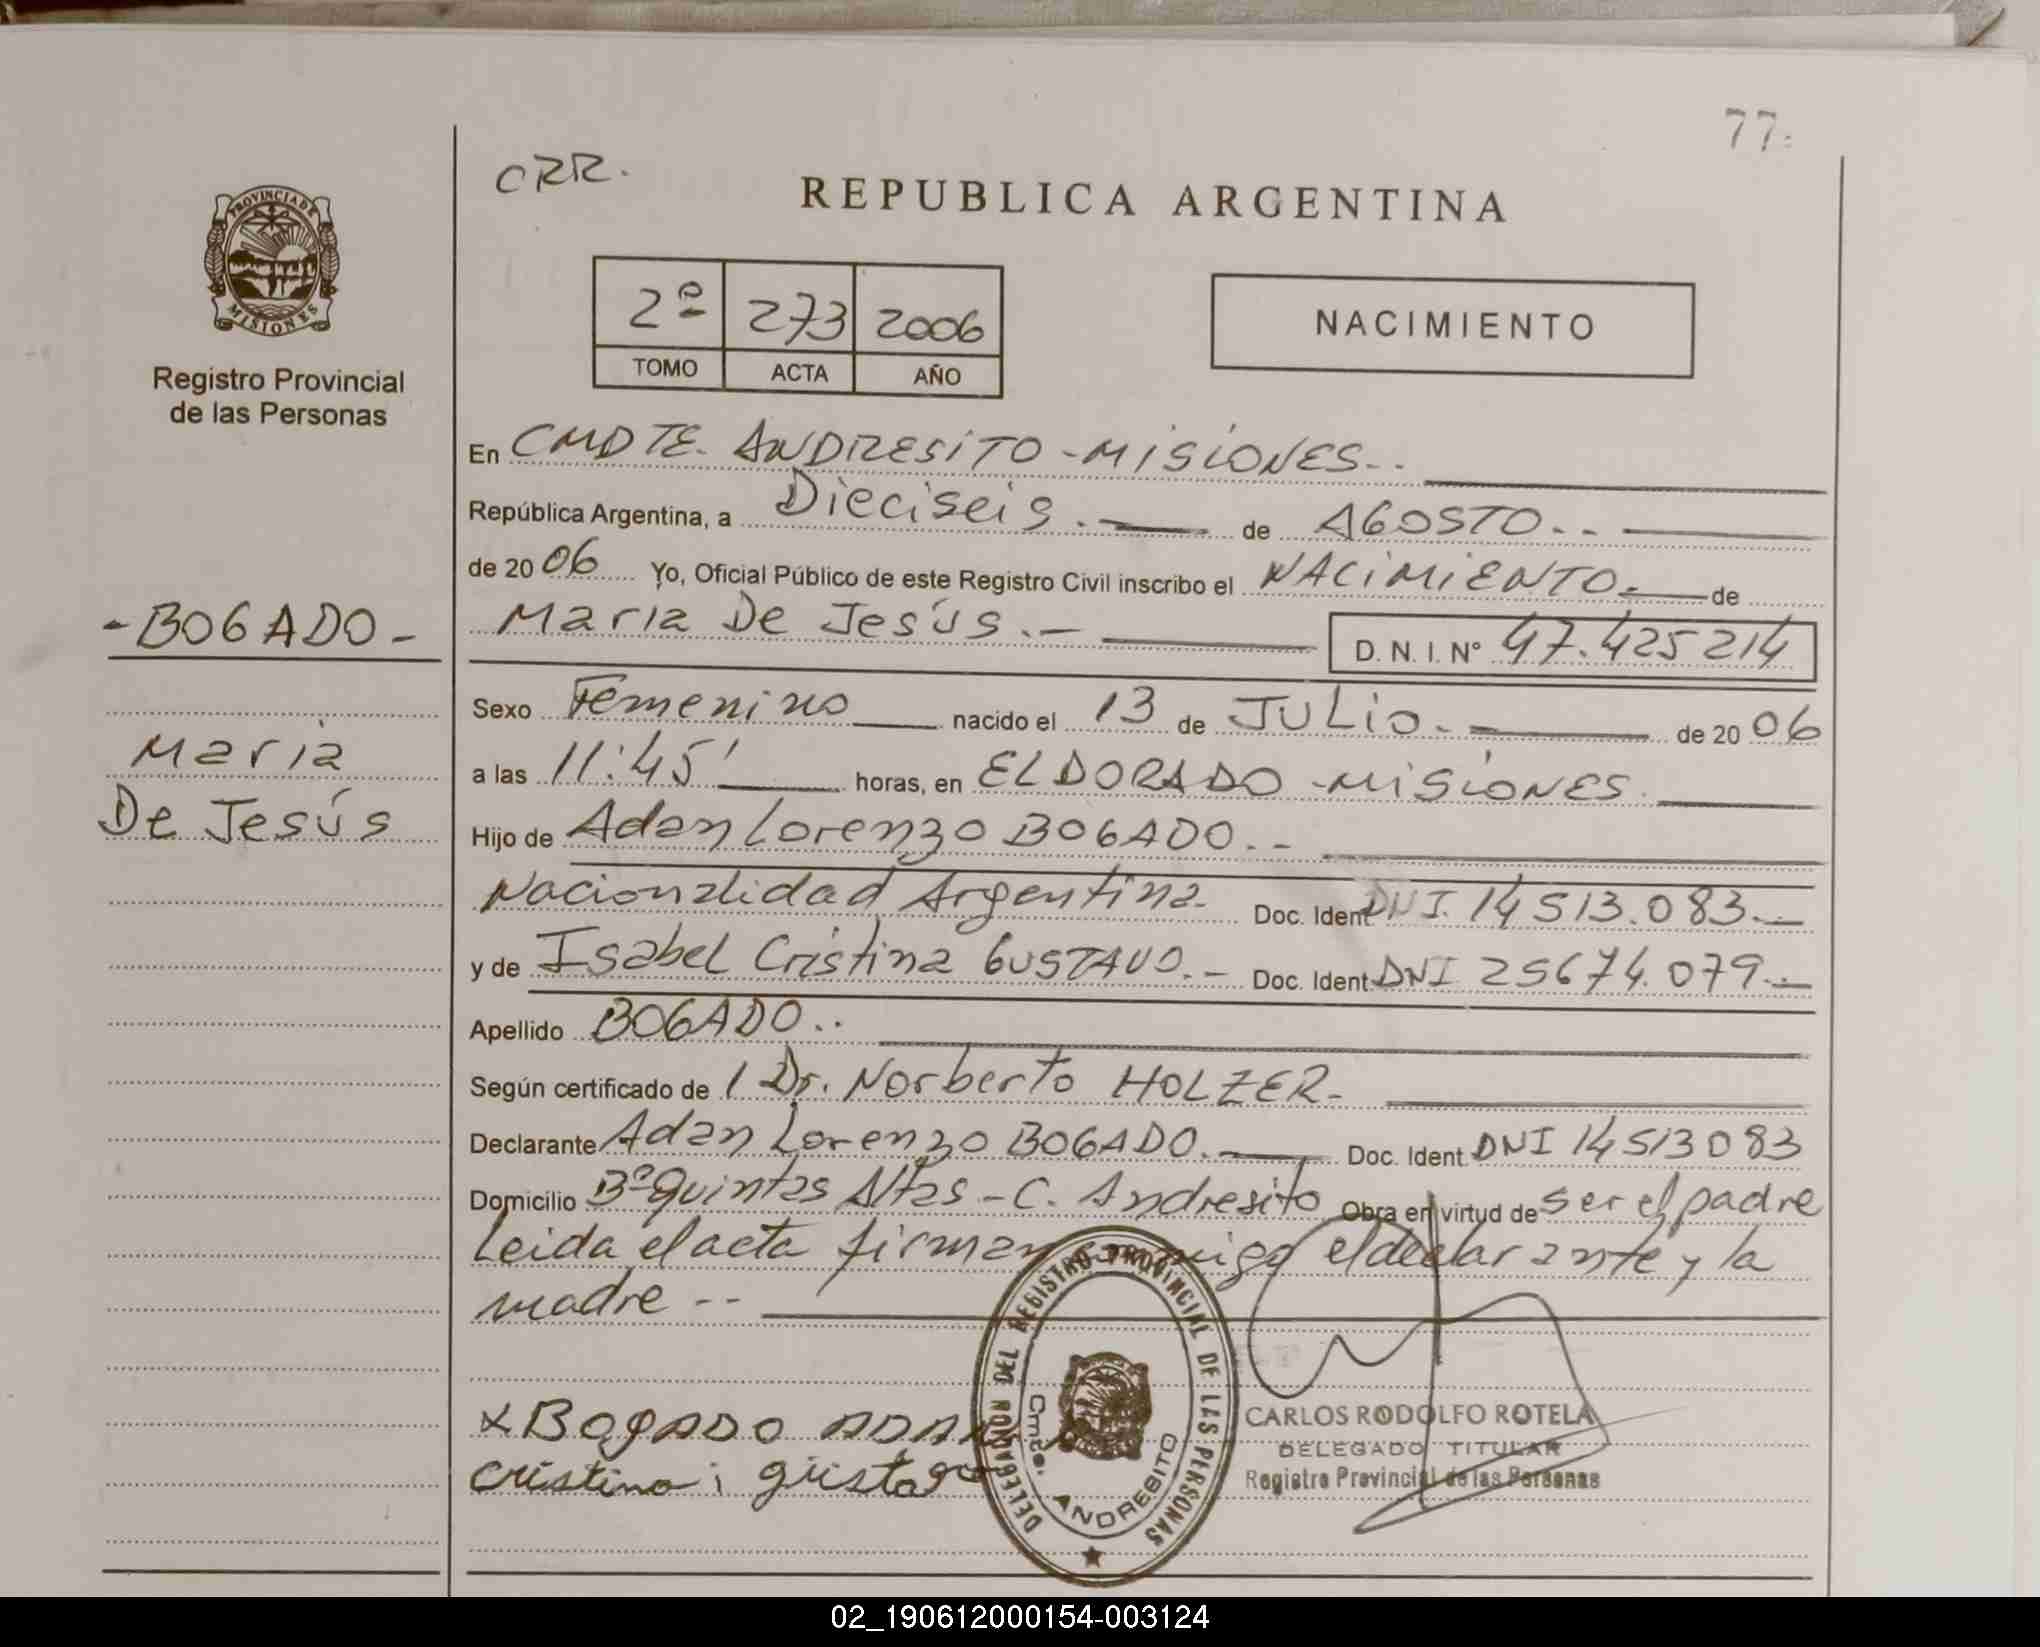 77.
CRR.
REPUBLICA ARGENTINA
PROVINCIA DE
MISIONES
Registro Provincial
de las Personas
2º 273 2006
TOMO ACTA AÑO
NACIMIENTO
En CMDTE. ANDRESITO - MISIONES..
República Argentina, a Dieciseis. de AGOSTO..
de 2006 Yo, Oficial Público de este Registro Civil inscribo el NACIMIENTO. de
- BOGADO -
Maria De Jesús. D. N. I. Nº 47.425214
Sexo Femenino nacido el 13 de JULIO. de 2006
Maria
a las 11:45' horas, en ELDORADO - MISIONES.
De Jesús
Hijo de Adan Lorenzo BOGADO..
Nacionalidad Argentina. Doc. Ident DNI. 14513.083.
y de Isabel Cristina GUSTAVO. Doc. Ident DNI 25674.079.
Apellido BOGADO..
Según certificado de 1 Dr. Norberto HOLZER.
Declarante Adan Lorenzo BOGADO. Doc. Ident. DNI 14513083
Domicilio Bº Quintas Altas - C. Andresito Obra en virtud de ser el padre
Leida el acta firman conmigo el declarante y la
madre --
x BOgADO ADAN
cristina gustavo
DELEGACION DEL REGISTRO PROVINCIAL DE LAS PERSONAS
Cmte. ANDRESITO
CARLOS RODOLFO ROTELA
DELEGADO TITULAR
Registro Provincial de las Personas
02_190612000154-003124